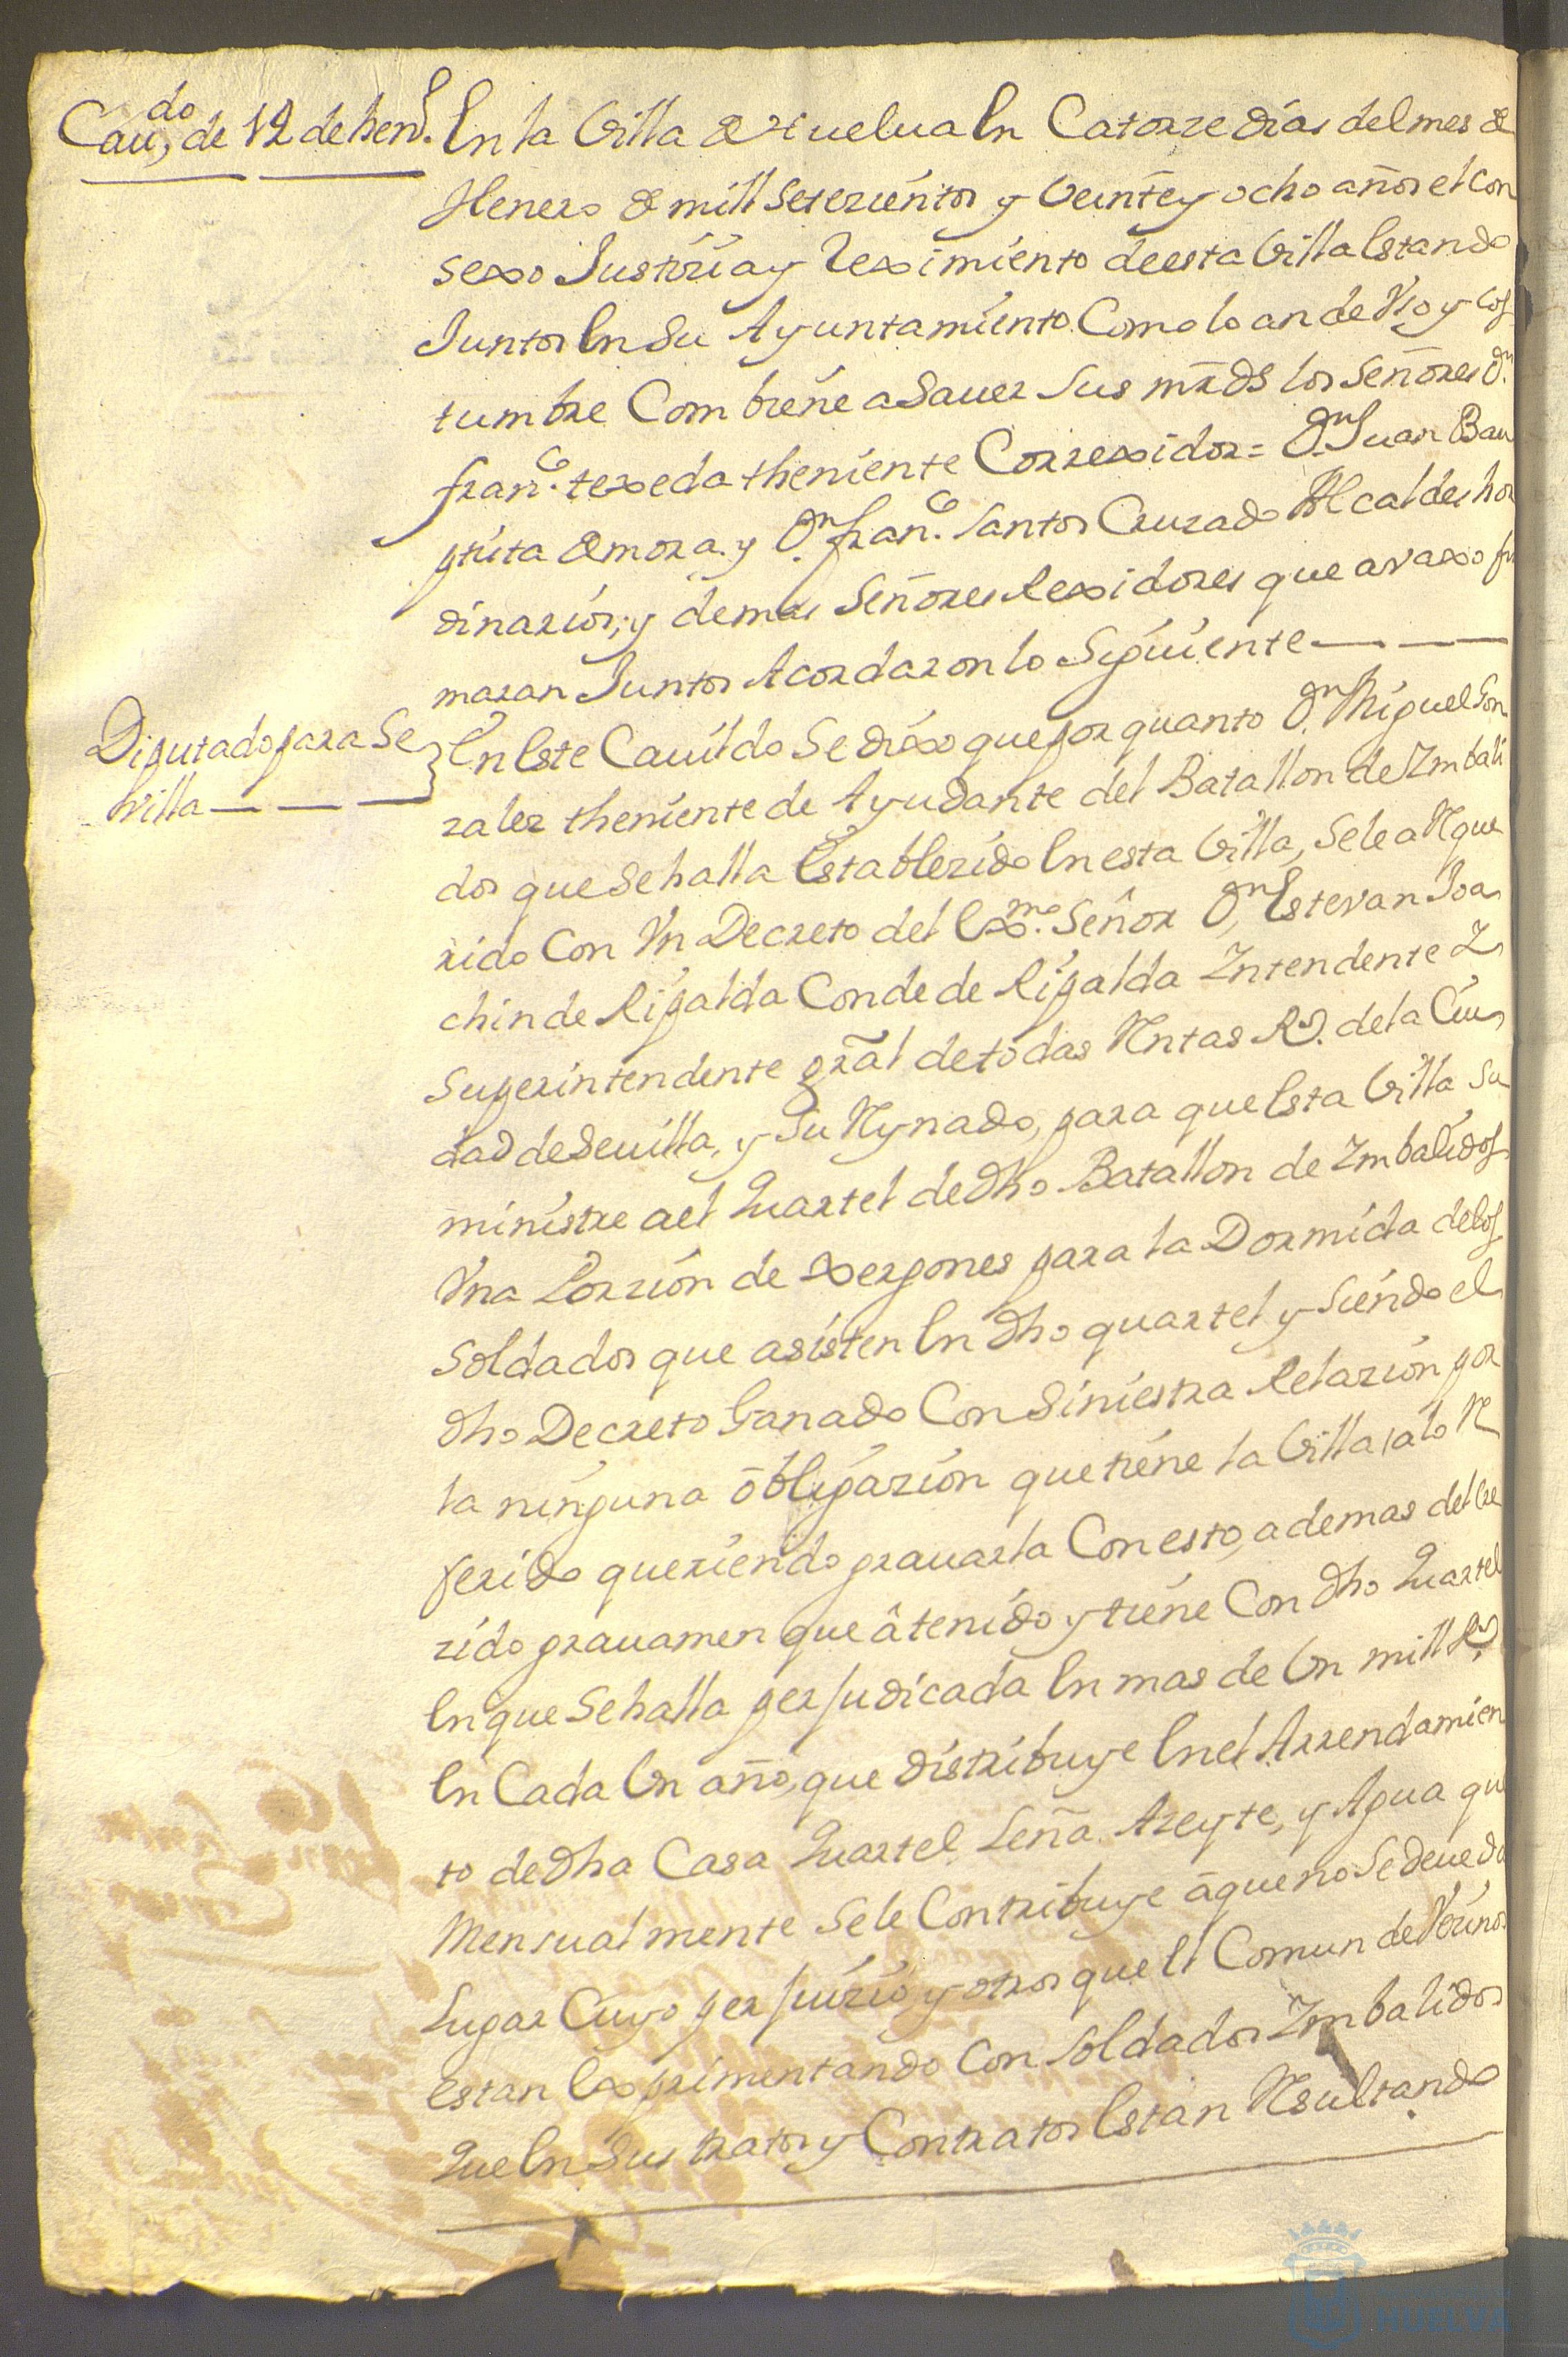 Cauᵈᵒ, de 12 de henº.
En la Villa de Huelua En Catorze dias del mes de
Henero de mill Setezientos y Veinte y ocho años el con
sexo Justizia y Reximiento de esta Villa Estando
Juntos En Su Ayuntamiento Como lo an de Vso y cos
tumbre Combiene a Sauer Sus mrds los Señores Dn
franᶜᵒ. texeda theniente Correxidor = Dn. Juan Bau
ptista de mora. y Dn. franᶜᵒ. Santos Cruzado Alcaldes hor
dinarios; y demas Señores Rexidores que avaxo fir
maran Juntos Acordaron lo Siguiente — — —
Diputado para Se
villa — — —
En Este Cauildo Se dixo que por quanto Dn. Miguel Gon
zalez theniente de Ayudante del Batallon de Imbali
dos que Se halla Establezido En esta Villa, Se le a Reque
rido Con Vn Decreto del Exᵐᵒ. Señor Dn, Estevan Joa
chin de Ripalda Conde de Ripalda Intendente I
Superintendente gral de todas Rentas Rs. de la Ciu
dad de Seuilla, y Su Reynado, para que Esta Villa Su
ministre a el Quartel de dho Batallon de Imbalidos
Vna Porzion de Xergones para la Dormida delos
Soldados que asisten En dho quartel y Siendo el
dho Decreto Ganado Con Siniestra Relazion por
la ninguna obligazion que tiene la Villa a lo Re
ferido queriendo grauarla Con esto, ademas del cre
zido grauamen que â tenido y tiene Con dho Quartel
En que Se halla perjudicada En mas de Vn mill Rs
En Cada Vn año, que distribuye En el Arrendamien
to de dha Casa Quartel Leña. Azeyte, y Agua que
Mensualmente Se le Contribuye â que no Se deue dar
Lugar Cuyo perjuizio y otros que El Comun de Vezinos
estan Exprimentando Con Soldados Imbalidos
Que En Sus tratos y Contratos Estan Resultando
HUELVA